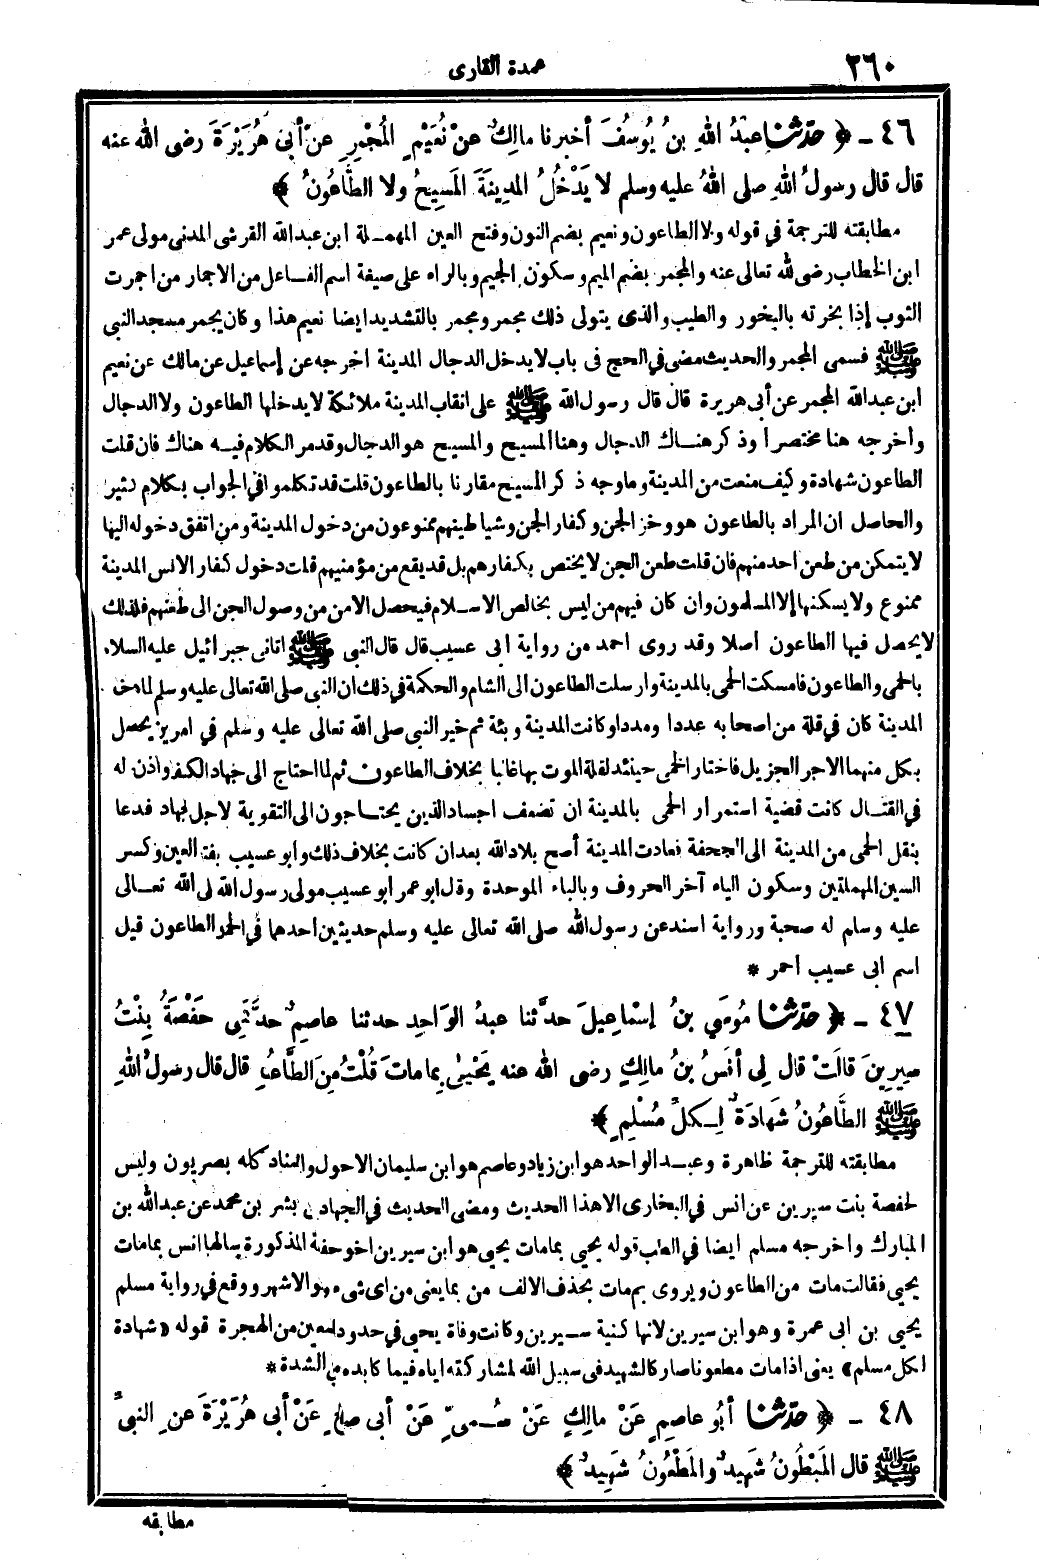 ٢٦٠
عمدة القارى
٤٦ - ﴿ حدّثنا عبْدُ اللهِ بنُ يُوسُفَ أخبرنا مالِكٌ عنْ نُعَيْمٍ المُجْمِرِ عنْ أبى هُرَيْرَةَ رضى الله عنه
قال قال رسولُ اللهِ صلى اللهُ عليه وسلم لا يَدْخُلُ المدِينَةَ المَسِيحُ ولا الطَّاعُونُ ﴾
مطابقته للترجمة في قوله ولا الطاعون ونعيم بضم النون وفتح العين المهملة ابن عبد الله القرشى المدنى مولى عمر
ابن الخطاب رضى لله تعالى عنه والمجمر بضم الميم وسكون الجيم وبالراء على صيغة اسم الفاعل من الاجمار من اجمرت
الثوب إذا بخرته بالبخور والطيب والذى يتولى ذلك مجمر ومجمر بالتشديد ايضا نعيم هذا وكان يجمر مسجد النبى
ﷺ فسمى المجمر والحديث مضى في الحج فى باب لا يدخل الدجال المدينة اخرجه عن إسماعيل عن مالك عن نعيم
ابن عبد الله المجمر عن أبى هريرة قال قال رسول الله ﷺ على انقاب المدينة ملائكة لا يدخلها الطاعون ولا الدجال
واخرجه هنا مختصرا وذكر هناك الدجال وهنا المسيح والمسيح هو الدجال وقد مر الكلام فيه هناك فان قلت
الطاعون شهادة وكيف منعت من المدينة وما وجه ذكر المسيح مقارنا بالطاعون قلت قد تكلموا في الجواب بكلام كثير
والحاصل ان المراد بالطاعون هو وخز الجن وكفار الجن وشياطينهم ممنوعون من دخول المدينة ومن اتفق دخوله اليها
لا يتمكن من طعن احد منهم فان قلت طعن الجن لا يختص بكفارهم بل قد يقع من مؤمنيهم قلت دخول كفار الانس المدينة
ممنوع ولا يسكنها إلا المسلمون وان كان فيهم من ليس بخالص الاسلام فيحصل الامن من وصول الجن الى طعنهم فلذلك
لا يحصل فيها الطاعون اصلا وقد روى احمد من رواية ابى عسيب قال قال النبى ﷺ اتانى جبرائيل عليه السلام
بالحمى والطاعون فامسكت الحمى بالمدينة وارسلت الطاعون الى الشام والحكمة في ذلك ان النبى صلى الله تعالى عليه وسلم لما دخل
المدينة كان في قلة من اصحابه عددا ومددا وكانت المدينة وبئة ثم خير النبى صلى الله تعالى عليه وسلم في امرين يحصل
بكل منهما الاجر الجزيل فاختار الحمى حينئذ لقلة الموت بها غالبا بخلاف الطاعون ثم لما احتاج الى جهاد الكفر واذن له
في القتال كانت قضية استمرار الحمى بالمدينة ان تضعف اجساد الذين يحتاجون الى التقوية لاجل لجهاد فدعا
بنقل الحمى من المدينة الى الجحفة فعادت المدينة أصح بلاد الله بعد ان كانت بخلاف ذلك وابو عسيب بفتح العين وكسر
السين المهملتين وسكون الياء آخر الحروف وبالباء الموحدة وقل ابو عمر ابو عسيب مولى رسول الله لى الله تعالى
عليه وسلم له صحبة ورواية اسند عن رسول الله صلى الله تعالى عليه وسلم حديثين احدهما في الحمى الطاعون قيل
اسم ابى عسيب احمر *
٤٧ - ﴿ حدّثنا مُوسَي بنُ إسْماعِيلَ حدَّثنا عبدُ الوَاحِدِ حدثنا عاصِمٌ حدَّثَتْنِى حَفْصَةُ بِنْتُ
سِيرِينَ قالَتْ قال لِى أنَسُ بنُ مالِكٍ رضى الله عنه يَحْيىٰ بِما ماتَ قُلْتُ مِنَ الطَّاعُ‍ِ قال قال رسولُ اللهِ
ﷺ الطَّاعُونُ شَهَادَةٌ لِكلِّ مُسْلِمٍ ﴾
مطابقته للترجمة ظاهرة وعبد الواحد هو ابن زياد وعاصم هو ابن سليمان الاحول والسناد كله بصريون وليس
لحفصة بنت سيرين عن انس في البخارى الا هذا الحديث ومضى الحديث في الجهاد بشر بن محمد عن عبد الله بن
المبارك واخرجه مسلم ايضا في الطب قوله يحيى بما مات يحيى هو ابن سيرين اخو حفة المذكورة سالها انس بما مات
يحيى فقالت مات من الطاعون ويروى بم مات بحذف الالف من بما يعنى من اى شىء وهو الاشهر ووقع في رواية مسلم
يحيى بن ابى عمرة وهو ابن سيرين لانها كنية سيرين وكانت وفاة يحيى في حدود لمعين من الهجرة قوله «شهادة
لكل مسلم» يعنى اذا مات مطعونا صار كالشهيد فى سبيل الله لمشاركته اياه فيما كابده من الشدة *
٤٨ - ﴿ حدّثنا أبُو عاصِمٍ عَنْ مالِكٍ عَنْ سُمىٍّ عَنْ أبى صالحٍ عَنْ أبى هُرَيْرَةَ عن النبىِّ
ﷺ قال المَبْطُونُ شَهِيدٌ والمَطْعُونُ شَهِيدٌ ﴾
مطابقه